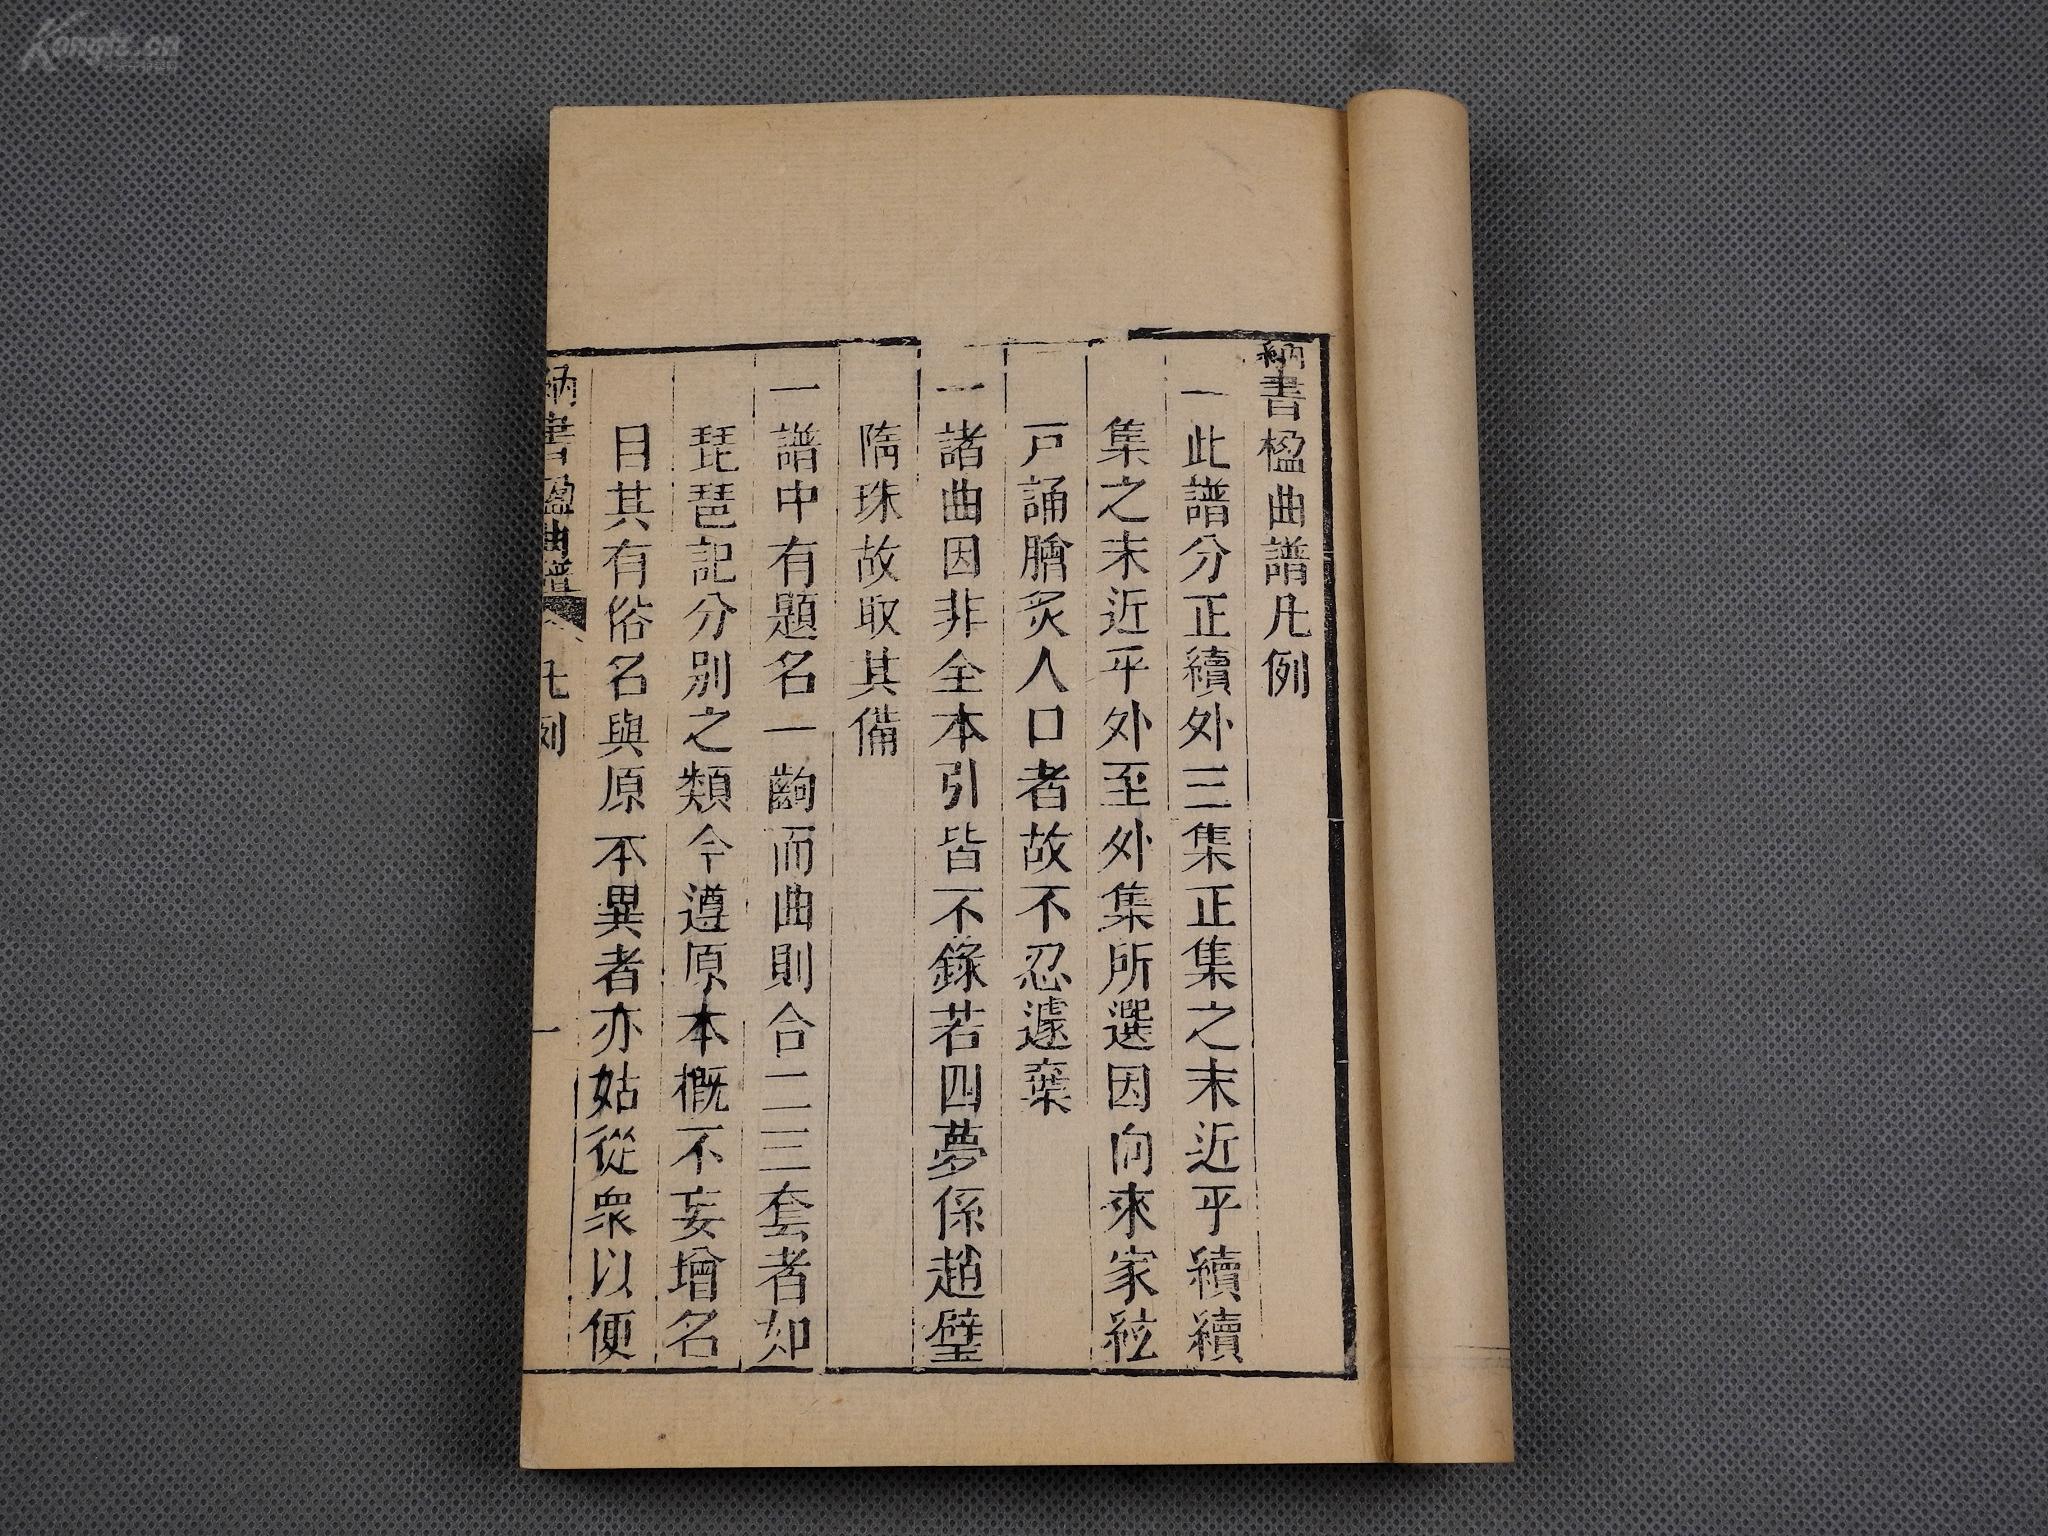 Kongfz.cn
納書楹曲譜凡例
一此譜分正續外三集正集之末近乎續續
集之末近乎外至外集所選因向來家絃
戸誦膾炙人口者故不忍遽棄
一諸曲因非全本引皆不錄若四夢係趙璧
隋珠故取其備
一譜中有題名一齣而曲則合二三套者如
琵琶記分別之類今遵原本概不妄增名
目其有俗名與原本異者亦姑從衆以便
納書楹曲譜 凡例 一